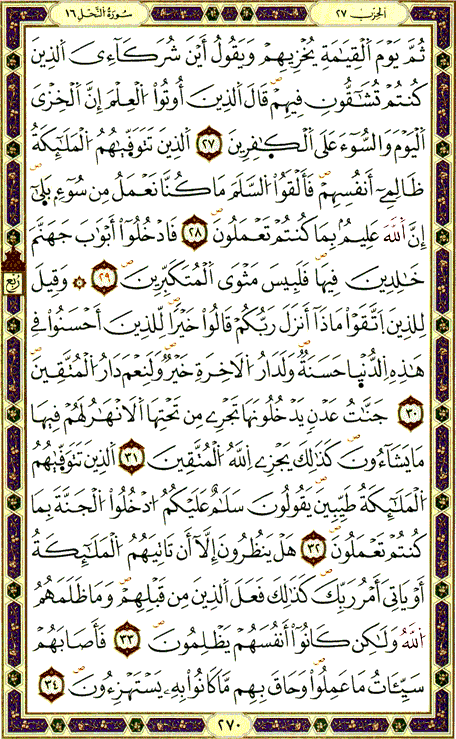 سُورَةُ النَّحْل ١٦
الحِزْب ٢٧
ثُمَّ يَوْمَ اَلْقِيَٰمَةِ يُخْزِيهِمْ وَيَقُولُ أَيْنَ شُرَكَآءِىَ اَلَّذِينَ
كُنتُمْ تُشَٰٓقُّونَ فِيهِمْ قَالَ اَلَّذِينَ أُوتُواْ اُلْعِلْمَ إِنَّ اَلْخِزْىَ
اَلْيَوْمَ وَالسُّوٓءَ عَلَى اَلْكٰفِرِينَ ٢٧ اَلَّذِينَ تَتَوَفّٜىٰهُمُ اُلْمَلَٰٓئِكَةُ
ظَالِمِےٓ أَنفُسِهِمْ فَأَلْقَوُاْ اُلسَّلَمَ مَا كُنَّا نَعْمَلُ مِن سُوٓءٍ بَلٜىٰٓ
إِنَّ اَللَّهَ عَلِيمٌ بِمَا كُنتُمْ تَعْمَلُونَ ٢٨ فَادْخُلُوٓاْ أَبْوَٰبَ جَهَنَّمَ
خَٰلِدِينَ فِيهَا فَلَبِيسَ مَثْوَى اَلْمُتَكَبِّرِينَ ٢٩ ۞ وَقِيلَ
رُبْع
لِلَّذِينَ اَتَّقَوْاْ مَاذَآ أَنزَلَ رَبُّكُمْ قَالُواْ خَيْراً لِّلَّذِينَ أَحْسَنُواْ فِے
هَٰذِهِ اِلدُّنْيٜا حَسَنَةٌ وَلَدَارُ اُلَاخِرَةِ خَيْرٌ وَلَنِعْمَ دَارُ اُلْمُتَّقِينَ
٣٠ جَنَّٰتُ عَدْنٍ يَدْخُلُونَهَا تَجْرِے مِن تَحْتِهَا اَلَانْهَٰرُ لَهُمْ فِيهَا
مَا يَشَآءُونَ كَذَٰلِكَ يَجْزِے اِللَّهُ اُلْمُتَّقِينَ ٣١ اَلَّذِينَ تَتَوَفّٜىٰهُمُ
اُلْمَلَٰٓئِكَةُ طَيِّبِينَ يَقُولُونَ سَلَٰمٌ عَلَيْكُمُ اُدْخُلُواْ اُلْجَنَّةَ بِمَا
كُنتُمْ تَعْمَلُونَ ٣٢ هَلْ يَنظُرُونَ إِلَّآ أَن تَاتِيَهُمُ اُلْمَلَٰٓئِكَةُ
أَوْ يَاتِىَ أَمْرُ رَبِّكَ كَذَٰلِكَ فَعَلَ اَلَّذِينَ مِن قَبْلِهِمْ وَمَا ظَلَمَهُمُ
اُللَّهُ وَلَٰكِن كَانُوٓاْ أَنفُسَهُمْ يَظْلِمُونَ ٣٣ فَأَصَابَهُمْ
سَيِّـَٔاتُ مَا عَمِلُواْ وَحَاقَ بِهِم مَّا كَانُواْ بِهِۦ يَسْتَهْزِءُونَ ٣٤
٢٧٠